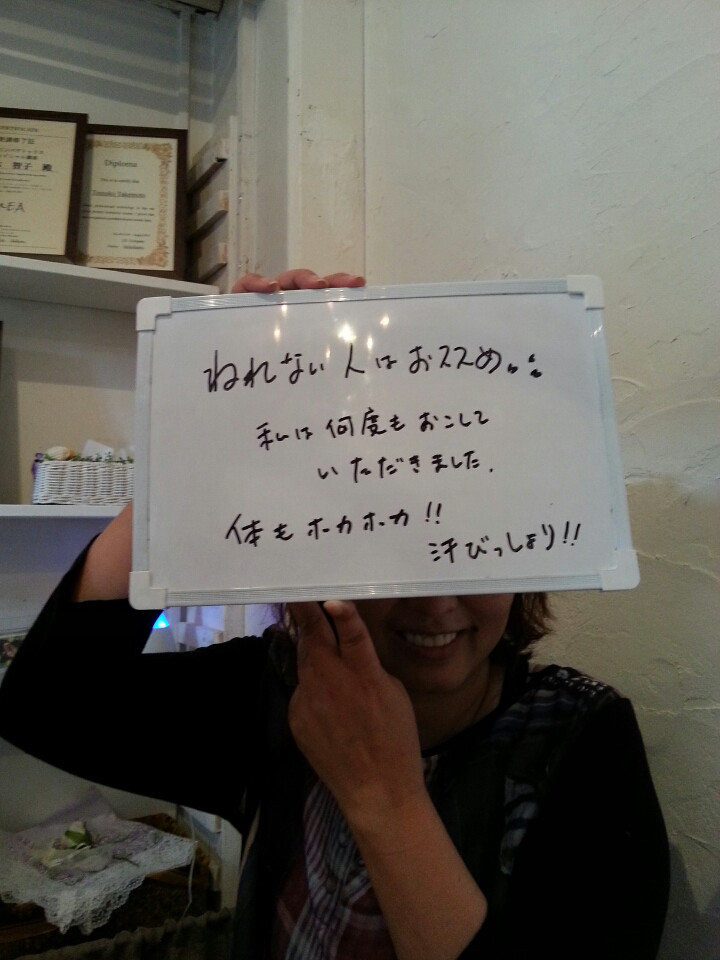 智子 殿
Diploma
ねれない人はおススめ
私は何度もおこして
いただきました.
体もホカホカ!!
汗びっしょり!!